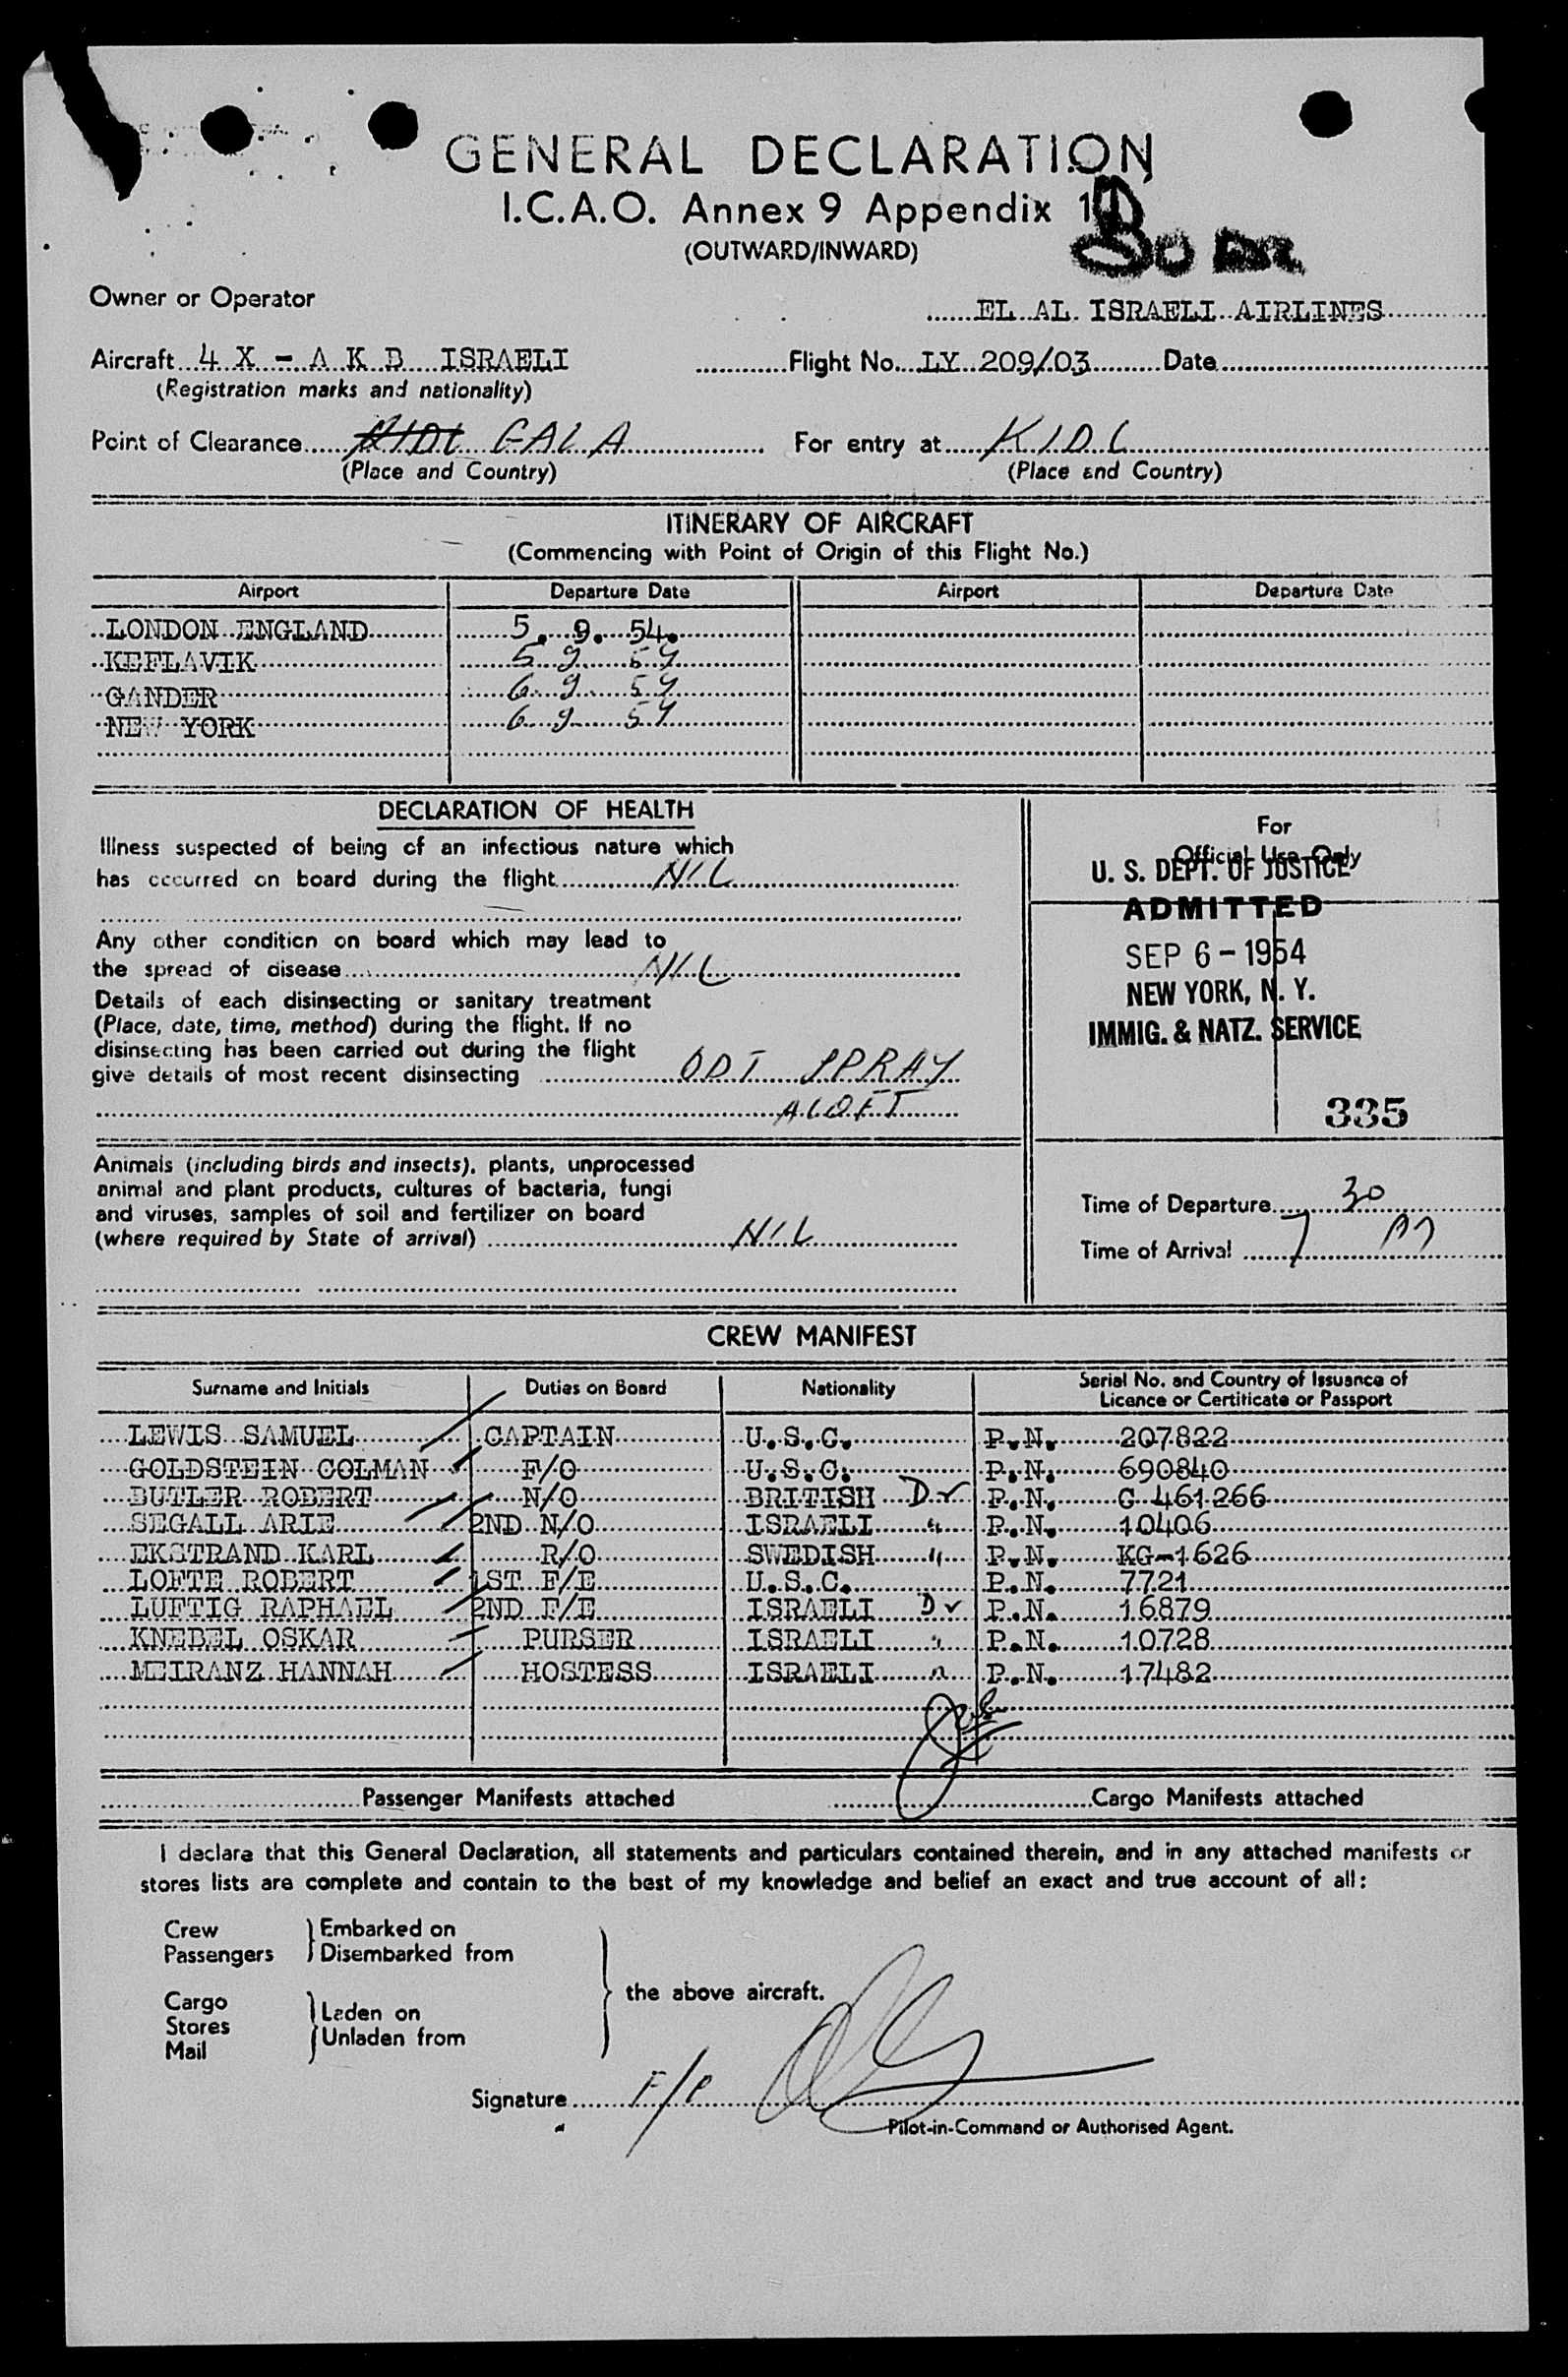 GENERAL DECLARATION
I.C.A.O. Annex 9 Appendix 1
(OUTWARD/INWARD)
Owner or Operator EL AL ISRAELI AIRLINES
Aircraft 4 X - A K B ISRAELI Flight No. LY 209/03 Date
(Registration marks and nationality)
Point of Clearance KIDL GALA For entry at KIDL
(Place and Country) (Place and Country)
ITINERARY OF AIRCRAFT
(Commencing with Point of Origin of this Flight No.)
Airport Departure Date Airport Departure Date
LONDON ENGLAND 5. 9. 54.
KEFLAVIK 5 9 54
GANDER 6 9 54
NEW YORK 6 9 54
DECLARATION OF HEALTH
Illness suspected of being of an infectious nature which
has occurred on board during the flight NIL
Any other condition on board which may lead to
the spread of disease NIL
Details of each disinsecting or sanitary treatment
(Place, date, time, method) during the flight. If no
disinsecting has been carried out during the flight
give details of most recent disinsecting DDT SPRAY
ALOFT
For
Official Use Only
U. S. DEPT. OF JUSTICE
ADMITTED
SEP 6 - 1954
NEW YORK, N. Y.
IMMIG. & NATZ. SERVICE
335
Animals (including birds and insects), plants, unprocessed
animal and plant products, cultures of bacteria, fungi
and viruses, samples of soil and fertilizer on board
(where required by State of arrival) NIL
Time of Departure 30
Time of Arrival 7
CREW MANIFEST
Surname and Initials Duties on Board Nationality Serial No. and Country of Issuance of
Licence or Certificate or Passport
LEWIS SAMUEL CAPTAIN U.S.C. P.N. 207822
GOLDSTEIN COLMAN F/O U.S.C. P.N. 690840
BUTLER ROBERT N/O BRITISH D P.N. C 461266
SEGALL ARIE 2ND N/O ISRAELI " P.N. 10406
EKSTRAND KARL R/O SWEDISH " P.N. KG-1626
LOFTE ROBERT 1ST F/E U.S.C. P.N. 7721
LUFTIG RAPHAEL 2ND F/E ISRAELI D P.N. 16879
KNEBEL OSKAR PURSER ISRAELI " P.N. 10728
MEIRANZ HANNAH HOSTESS ISRAELI " P.N. 17482
Passenger Manifests attached Cargo Manifests attached
I declare that this General Declaration, all statements and particulars contained therein, and in any attached manifests or
stores lists are complete and contain to the best of my knowledge and belief an exact and true account of all:
Crew Embarked on
Passengers Disembarked from
the above aircraft.
Cargo
Stores
Mail
Laden on
Unladen from
Signature F/P
Pilot-in-Command or Authorised Agent.